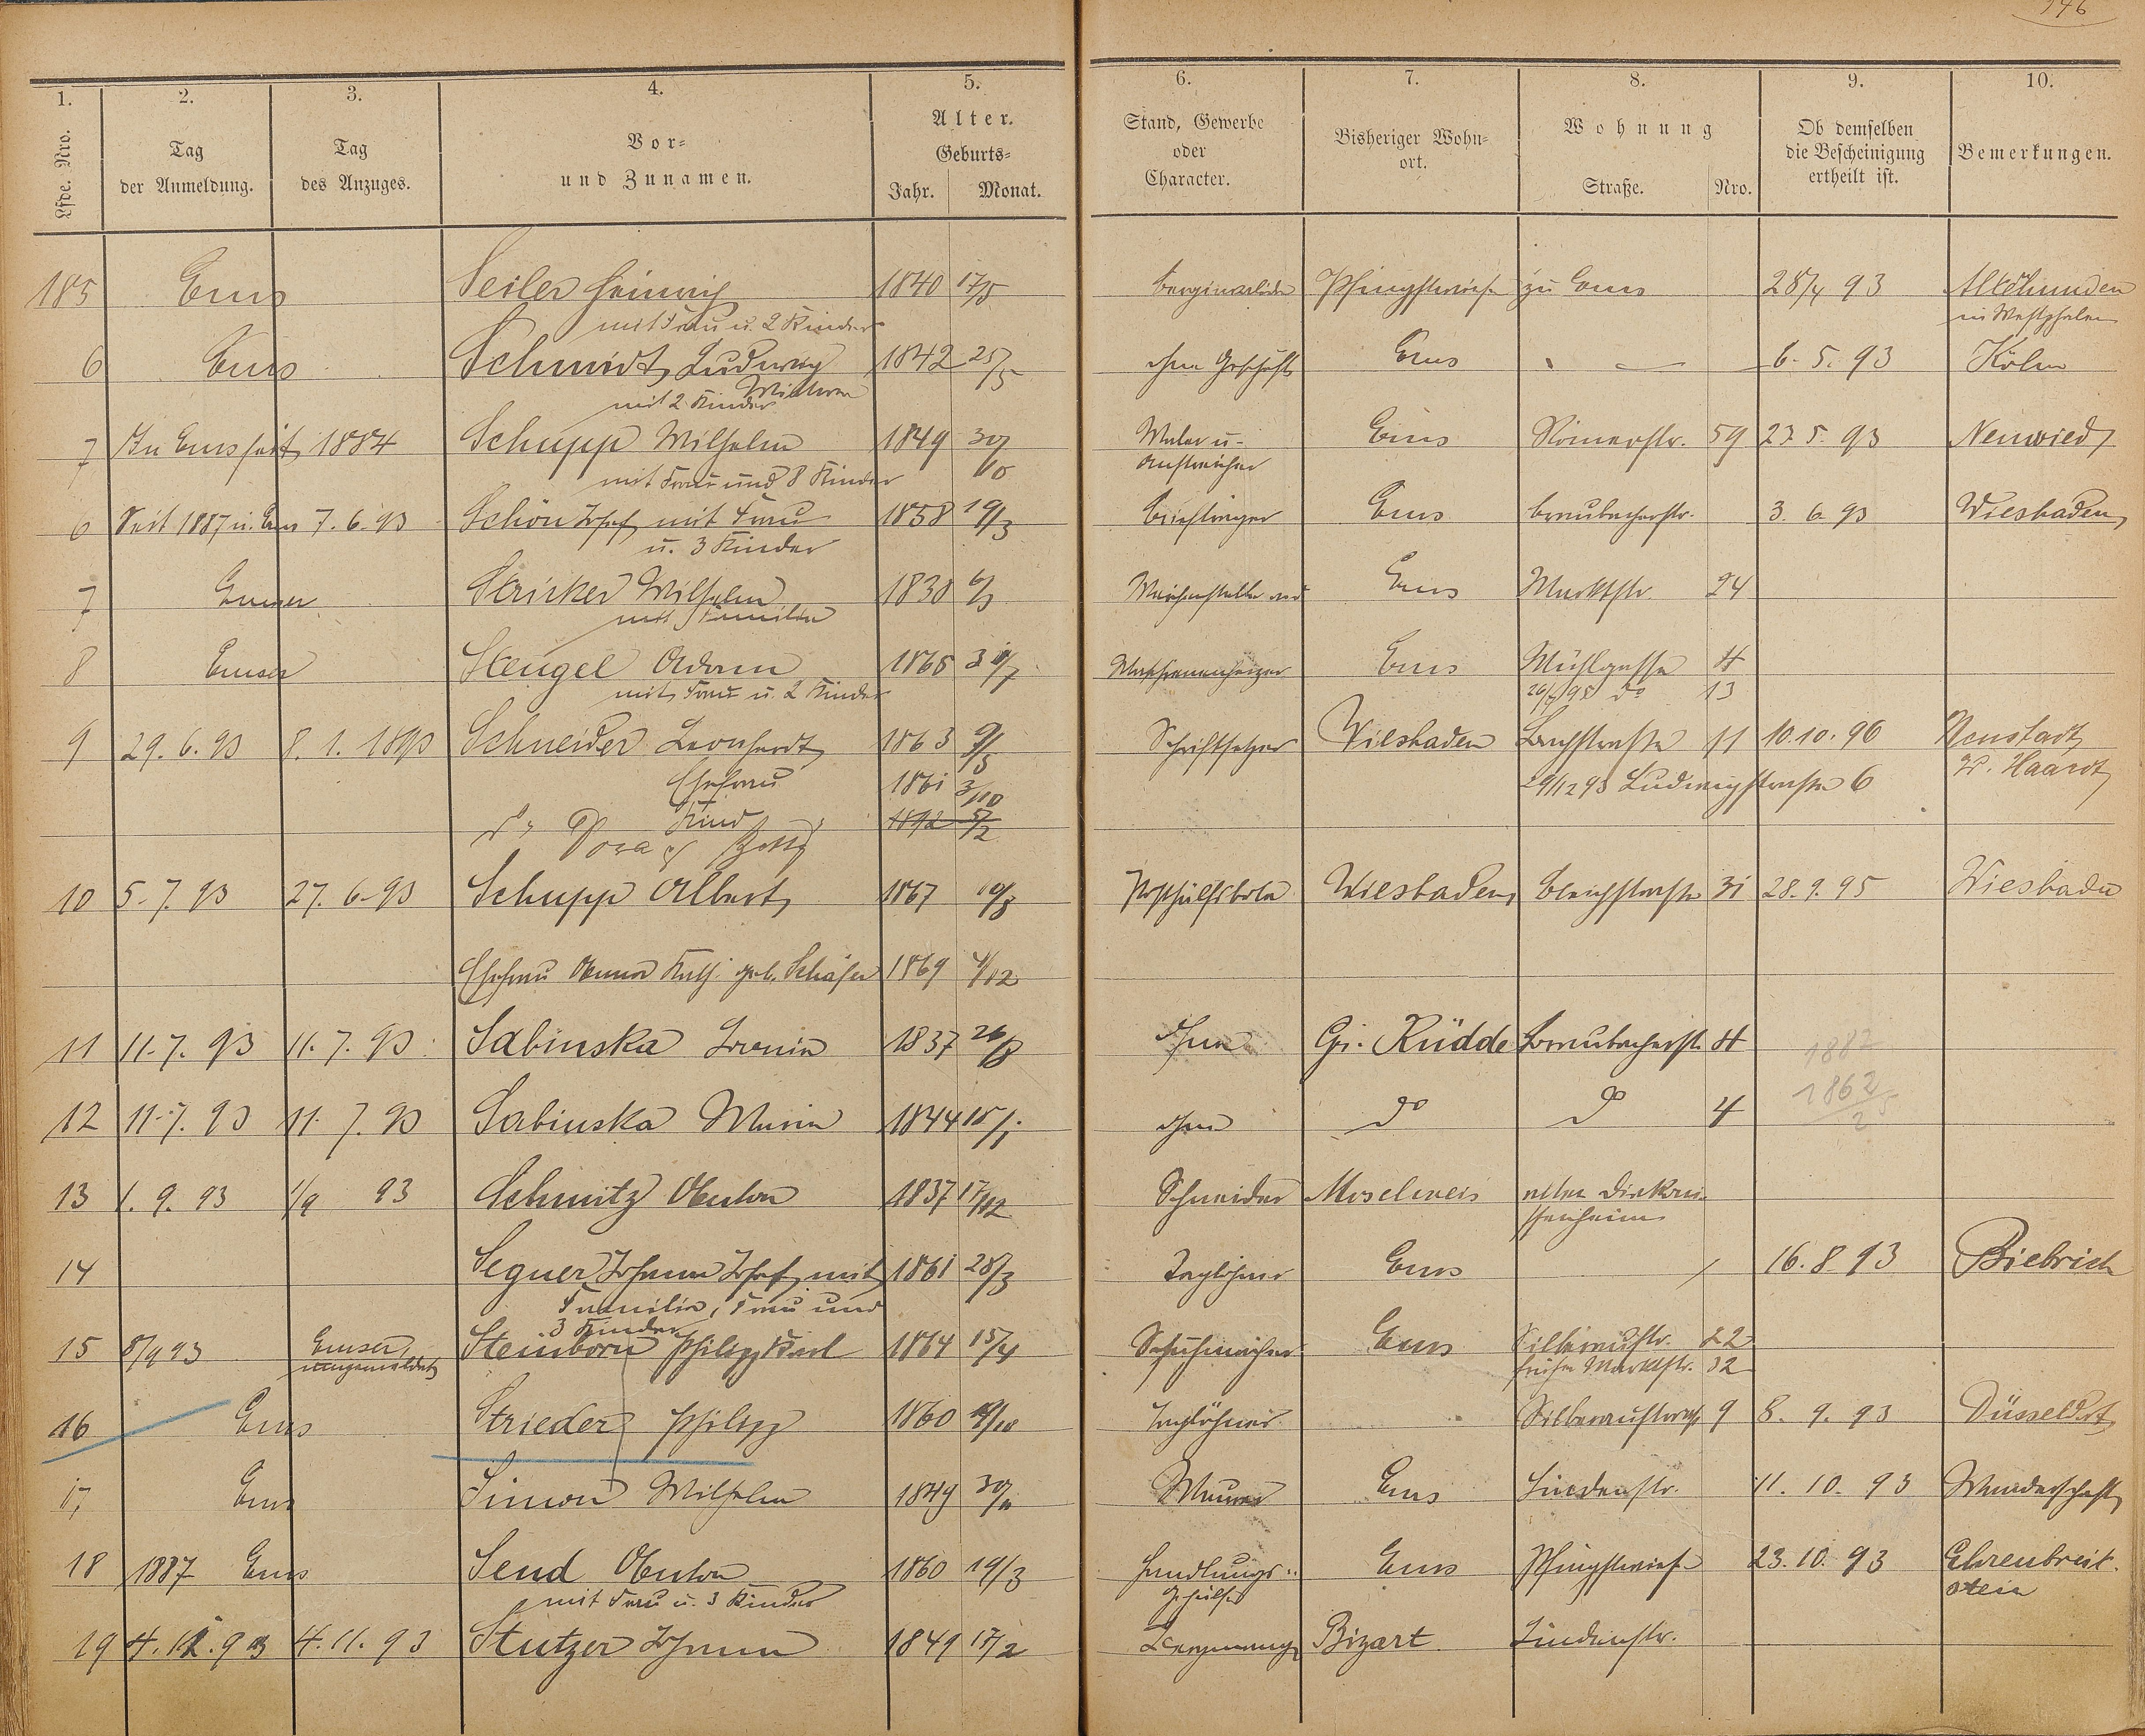 146
1. 2. 3. 4. 5. 6. 7. 8. 9. 10.
Lfde. Nro. Tag der Anmeldung. Tag des Anzuges. Vor- und Zunamen. Alter. Geburts- Jahr. Monat. Stand, Gewerbe oder Character. Bisheriger Wohn-ort. Wohnung Straße. Nro. Ob demselben die Bescheinigung ertheilt ist. Bemerkungen.
185 Ems Seiler Heinrich 1840 17/5 Berginvalide Pfingstwiese zu Ems 28/4 93 Altehunden
mit Frau u. 2 Kinder in Westphalen
6 Ems Schmidt Ludwig 1842 25/5 ohne Geschäft Ems 6. 5. 93 Köln
Wittwer
mit 2 Kinder
7 In Ems seit 1884 Schupp Wilhelm 1849 30/10 Maler u. Ems Römerstr. 59 23. 5. 93 Neuwied
mit Frau und 8 Kinder Anstreicher
6 Seit 1887 in Ems 7. 6. 93 Schön Josef mit Frau 1858 19/3 Briefträger Ems Braubacherstr. 3. 6. 93 Wiesbaden
u. 3 Kinder
7 Emser Stricker Wilhelm 1830 Weichensteller Ems Marktstr. 24
mit Familie
8 Emser Stengel Adam 1865 Maschinenheizer Ems Mühlgasse 4
mit Frau u. 2 Kinder do 13
9 29. 6. 93 8. 1. 1893 Schneider Leonhardt 1863 9/5 Schriftsetzer Wiesbaden Bachstraße 11 10. 10. 96 Neustadt
Ehefrau 1861 3/10 29/12 93 Ludwigstraße 6 Haardt
Kind 1892 5/2
Dora
10 5. 7. 93 27. 6. 93 Schupp Albert 1867 Posthülfsbote Wiesbaden Bleichstraße 31 28. 9. 95 Wiesbaden
Ehefrau Anna Kath. geb. Schäfer 1869 4/12
11 11. 7. 93 11. 7. 93 Sabinska 1837 26/8 Ohne Gr. Rüdde Braubacherstr. 4 1882
12 11. 7. 93 11. 7. 93 Sabinska Maria 1844 15/1 ohne do do 4 1862
13 1. 9. 93 1/9 93 Schmitz Anton 1837 17/12 Schneider Moselweis altes Diakonis-
senheim
14 Segner Johann Josef mit 1861 28/3 Taglöhner Ems 16. 8. 93 Biebrich
Familie, Frau und
3 Kinder
15 8/9 93 Emser Steinborn Philipp Karl 1864 15/4 Schuhmacher Ems Silberaustr. 22
früher Marktstr. 32
16 Ems Strieder Philipp 1860 Taglöhner Silberaustraße 9 8. 9. 93 Düsseldorf
17 Ems Simon Wilhelm 1849 30/11 Maurer Ems Lindenstr. 11. 10. 93 Wanderschaft
18 1887 Ems Send Anton 1860 19/3 Handlungs- Ems Pfingstwiese 23. 10. 93 Ehrenbreit-
mit Frau u. 3 Kinder gehülfe stein
19 4. 11. 93 4. 11. 93 Stutzer Johann 1849 17/2 Bergmann Bizart Lindenstr.